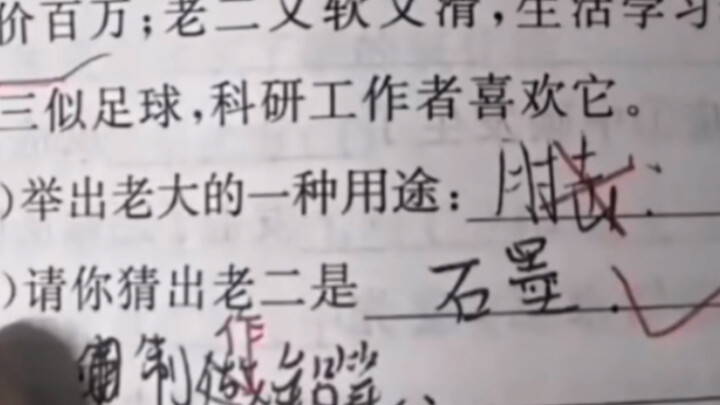 价百万;老二又软又滑,生活学习
三似足球,科研工作者喜欢它。
)举出老大的一种用途:
)请你猜出老二是 石墨.
作
制做